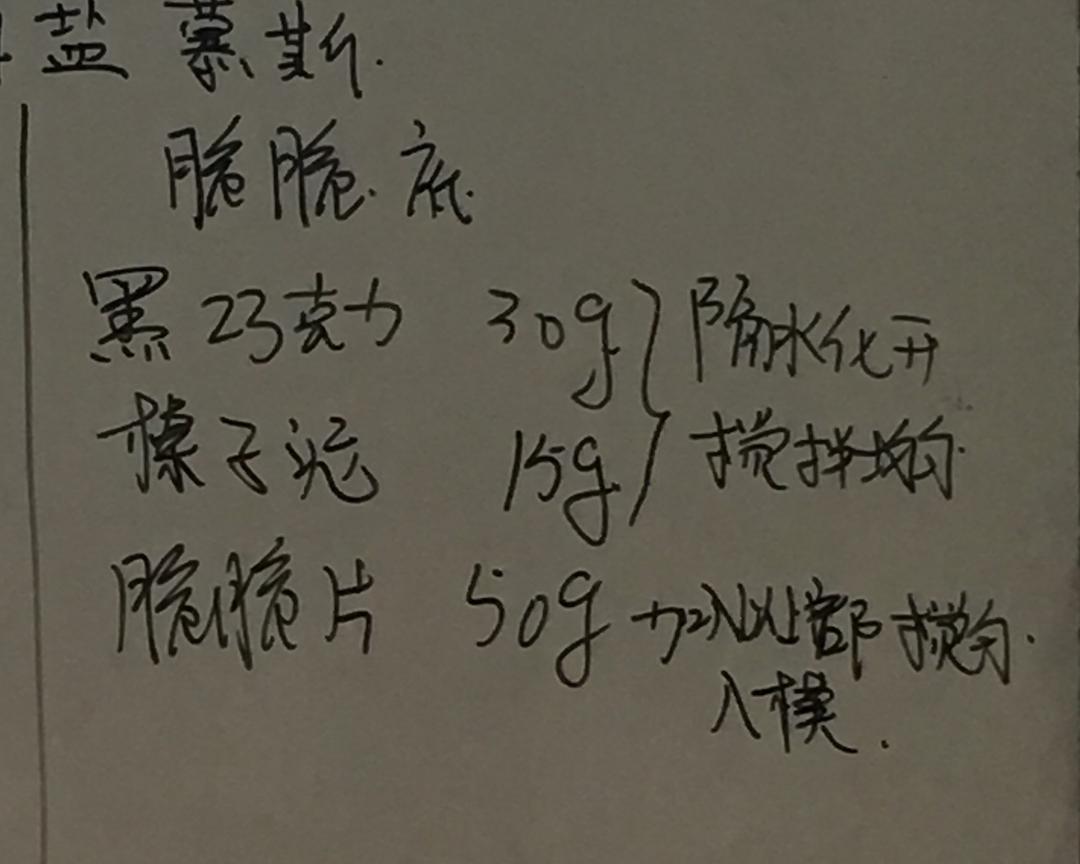 盐 慕斯.
脆脆底
黑23克力 30g 隔水化开
榛子泥 15g 搅拌均匀.
脆脆片 50g 加入此部搅匀.
入模.